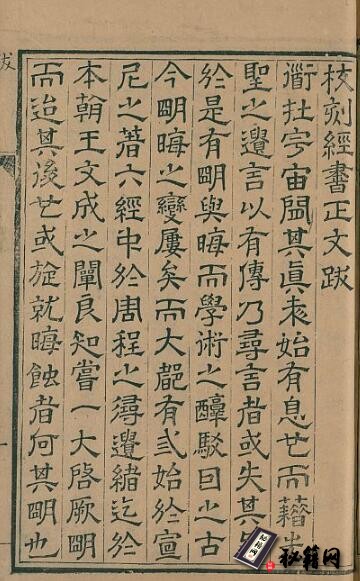 校刻經書正文跋
衟㘴宇宙閒其眞未始有息也而藉出
聖之遺言以有傳乃尋言者或失其
於是有明與晦而學術之醇駁因之古
今明晦之變屢矣而大都有弍始於宣
尼之著六經中於周程之尋遺緒迄於
本朝王文成之闡良知嘗一大啓厥明
而迨其後也或旋就晦蝕者何其明也
跋
秘籍网